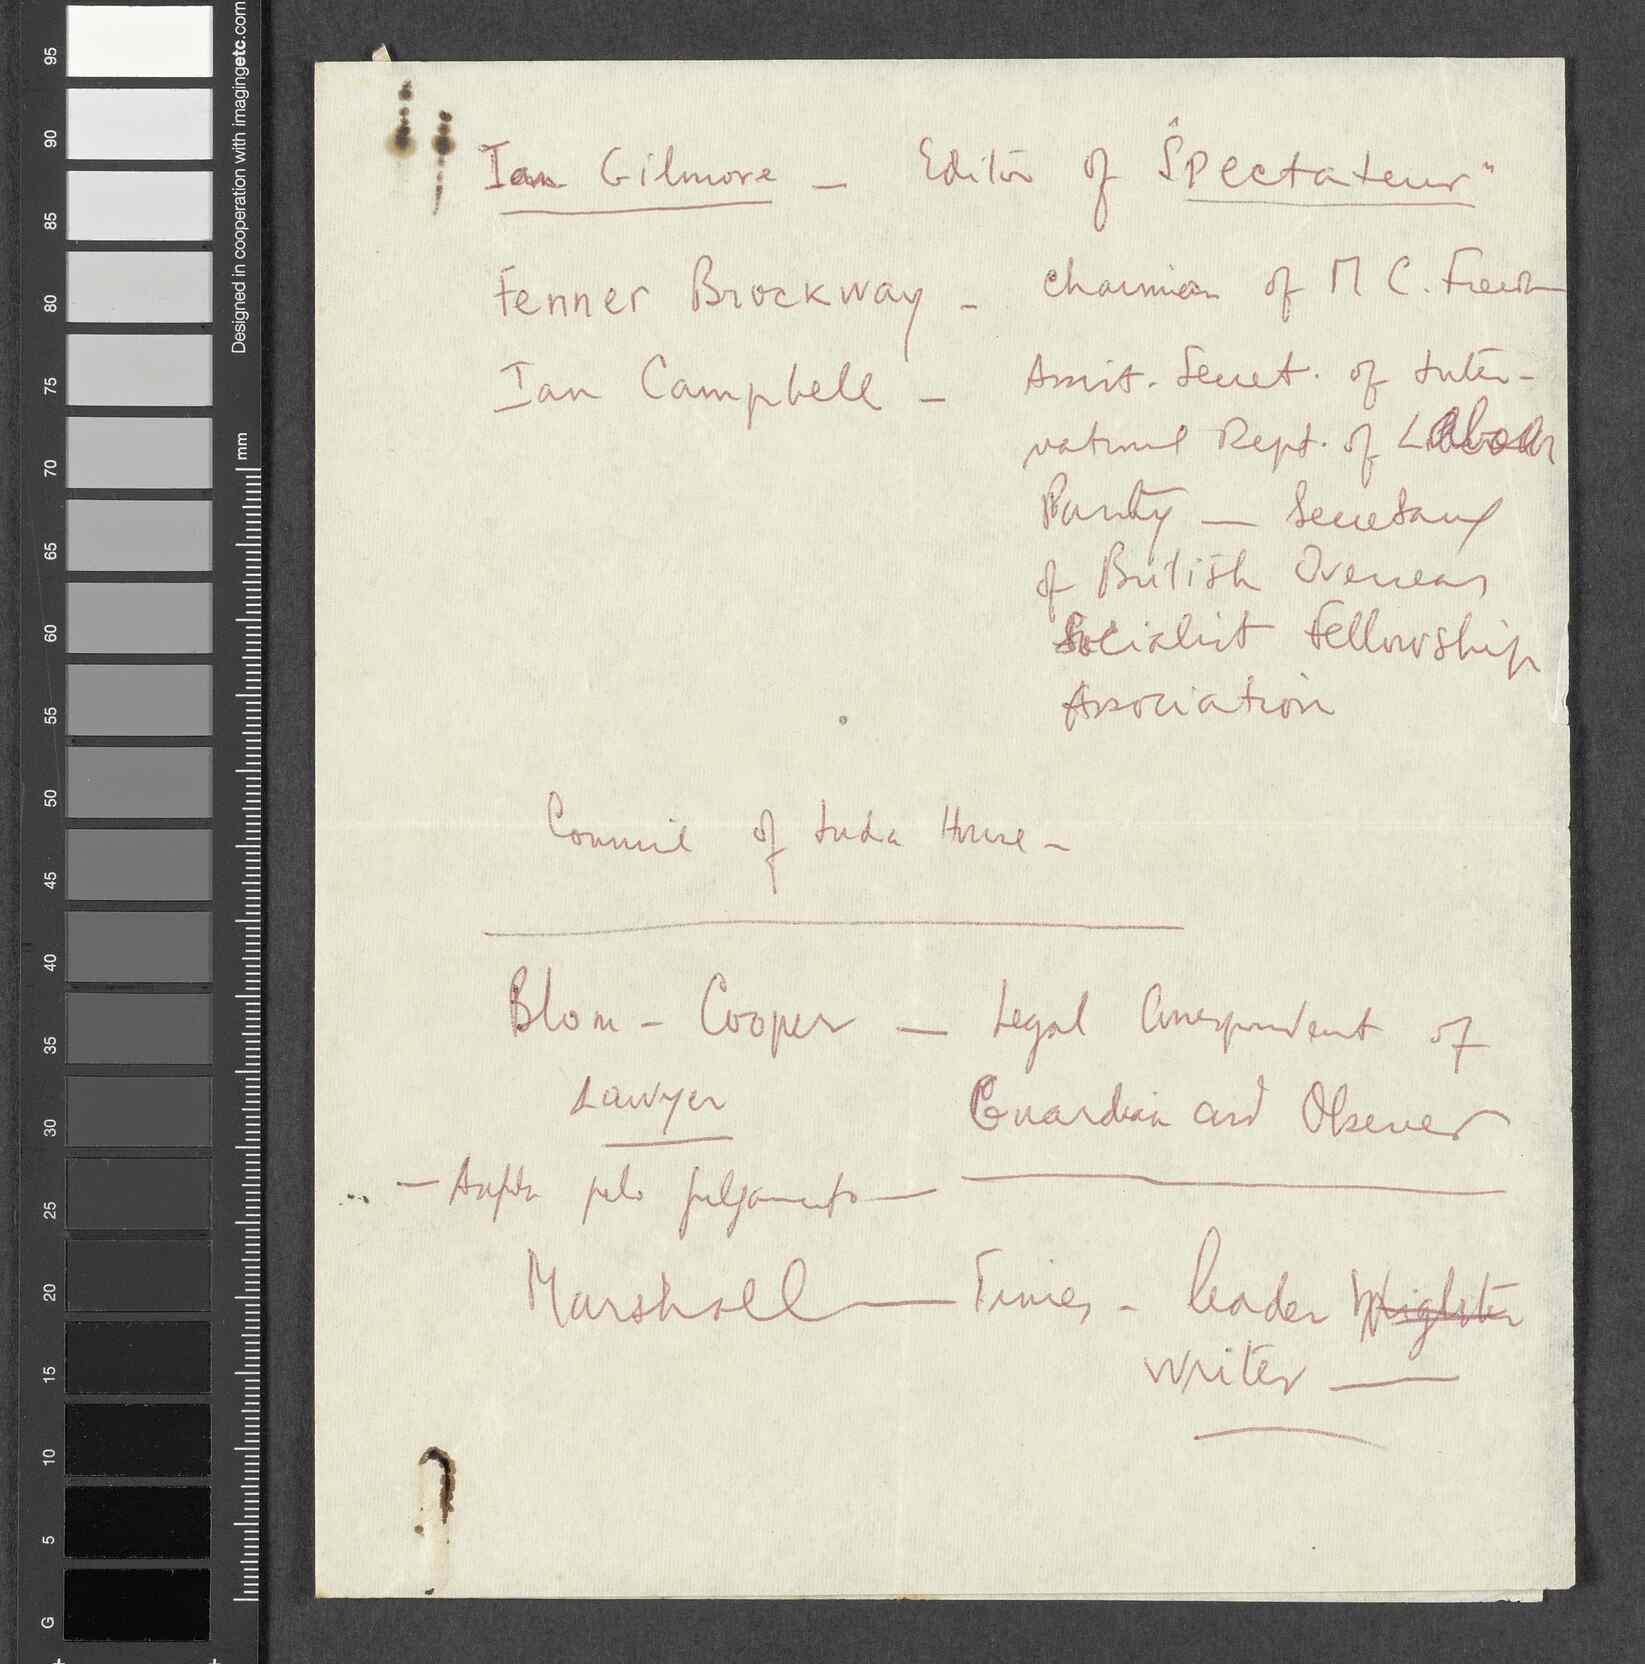 Ian Gilmore — Editor of "Spectateur"
Fenner Brockway - Chairman of M C. Freedom
Ian Campbell - Assist. Secret. of Inter-
national Dept. of Labour
Party — Secretary
of British Overseas
Socialist Fellowship
Association
Council of India House -
Blom - Cooper — Legal Correspondent of
Lawyer Guardian and Observer
— pelo julgamento —
Marshall — Times - leader
writer —
95
90
85
80
75
70
65
60
55
50
45
40
35
30
25
20
15
10
5
G
mm
Designed in cooperation with imagingetc.com